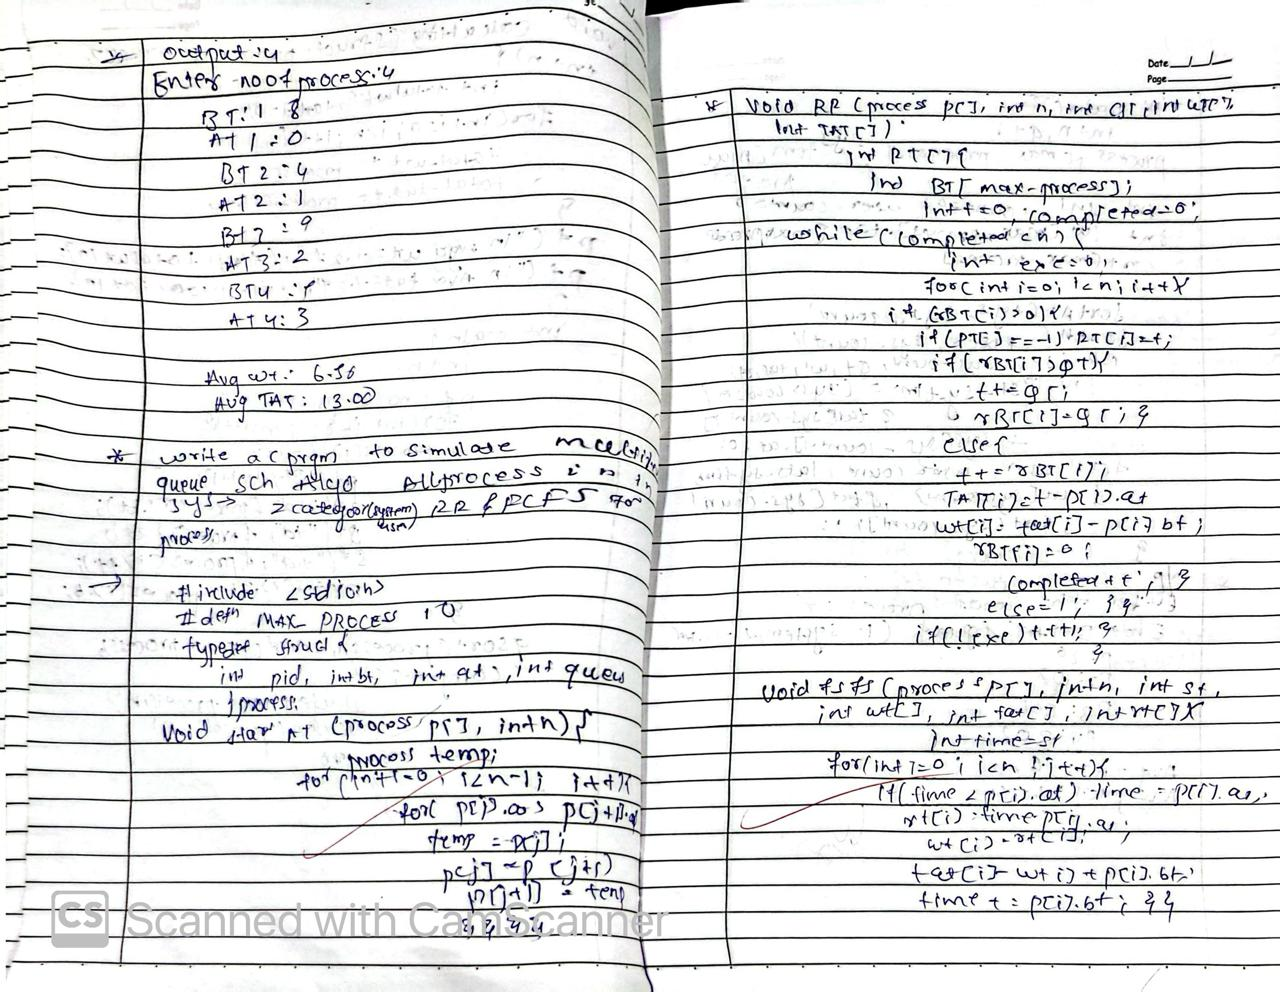 output :4
Enter no of process : 4
BT : 1 8
AT 1 : 0
BT 2 : 4
AT 2 : 1
BT3 : 9
AT 3 : 2
BT4 :
AT 4 : 3
Avg wt :
Avg TAT : 13.00
* write a c prgm to simulate
queue sch Algo All process in
sys → 2 categor(system) RR & FCFS for
process
→ # include <stdio.h>
# defn MAX_PROCESS 10
typedef struct {
int pid, int bt, int at, int queu
} process;
void AT (process p[], int n) {
process temp;
for (int i=0; i<n-1; i++) {
for( p[j].
temp = p[j];
p[j] = p [j+1]
p[j+1] = temp
} } } }
CS Scanned with CamScanner
Date / /
Page
* Void RR (process p[], int n, int qt, int wt[],
int TAT [])
int RT[]{
int BT[ max-process];
int t=0, completed=0;
while (completed < n) {
int exe=0;
for( int i=0; i<n; i++){
if (rBT[i]>0){
if (RT[]==-1) RT[i]=t;
if( rBT[i]>qt){
t+=qt;
rBT[i]=qt; }
else{
t+=rBT[i];
TAT[i]=t-p[i].at
wt[i]= tat[i]-p[i].bt;
rBT[i]=0;
completed++; }
else=1; } }
if(!exe)t++; }
}
Void fsfs (process p[], int n, int st,
int wt[], int tat[], int rt[]){
int time=st
for(int i=0; i<n; i++){
if(time < p[i].at) time = p[i].at;
rt[i]=time-p[i].at;
wt[i]=rt[i];
tat[i]= wt i] + p[i].bt;
time += p[i].bt; } }